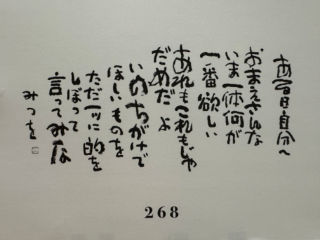 ある日自分へ
おまえさんな
いま一体何が
一番欲しい
あれもこれもじゃ
だめだよ
いのちがけで
ほしいものを
ただ一ツに的を
しぼって
言ってみな
みつを
268